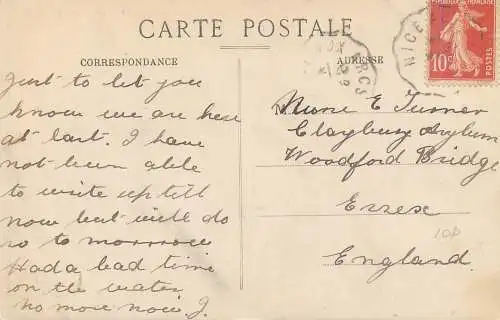 CARTE POSTALE
CORRESPONDANCE
Just to let you
know we are here
at last. I have
not been able
to write up till
now but will do
so to morrow
Had a bad time
on the water
no more now J.
ADRESSE
Nurse E Turner
Claybury Asylum
Woodford Bridge
Essex
England.
10p
NICE
REPUBLIQUE FRANÇAISE
10c
POSTES